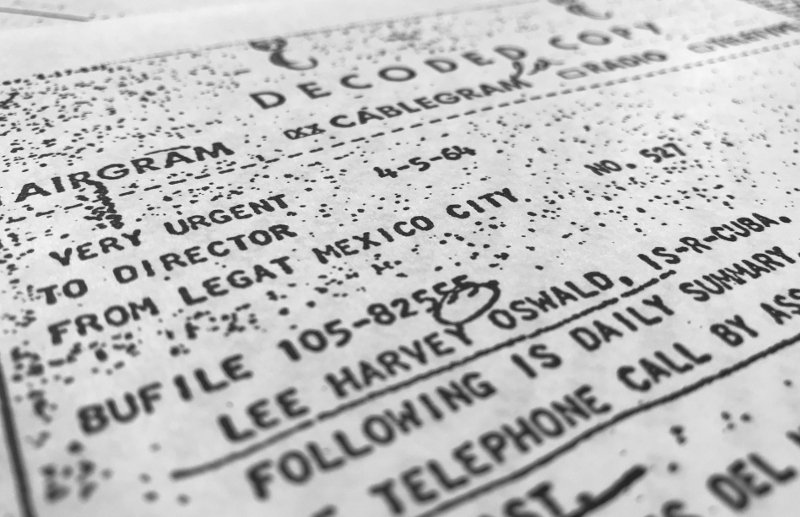 DECODED COPY
AIRGRAM xx CABLEGRAM RADIO
VERY URGENT 4-5-64
TO DIRECTOR
FROM LEGAT MEXICO CITY NO. 527
BUFILE 105-82555
LEE HARVEY OSWALD, IS-R-CUBA.
FOLLOWING IS DAILY SUMMARY.
TELEPHONE CALL BY
DEL